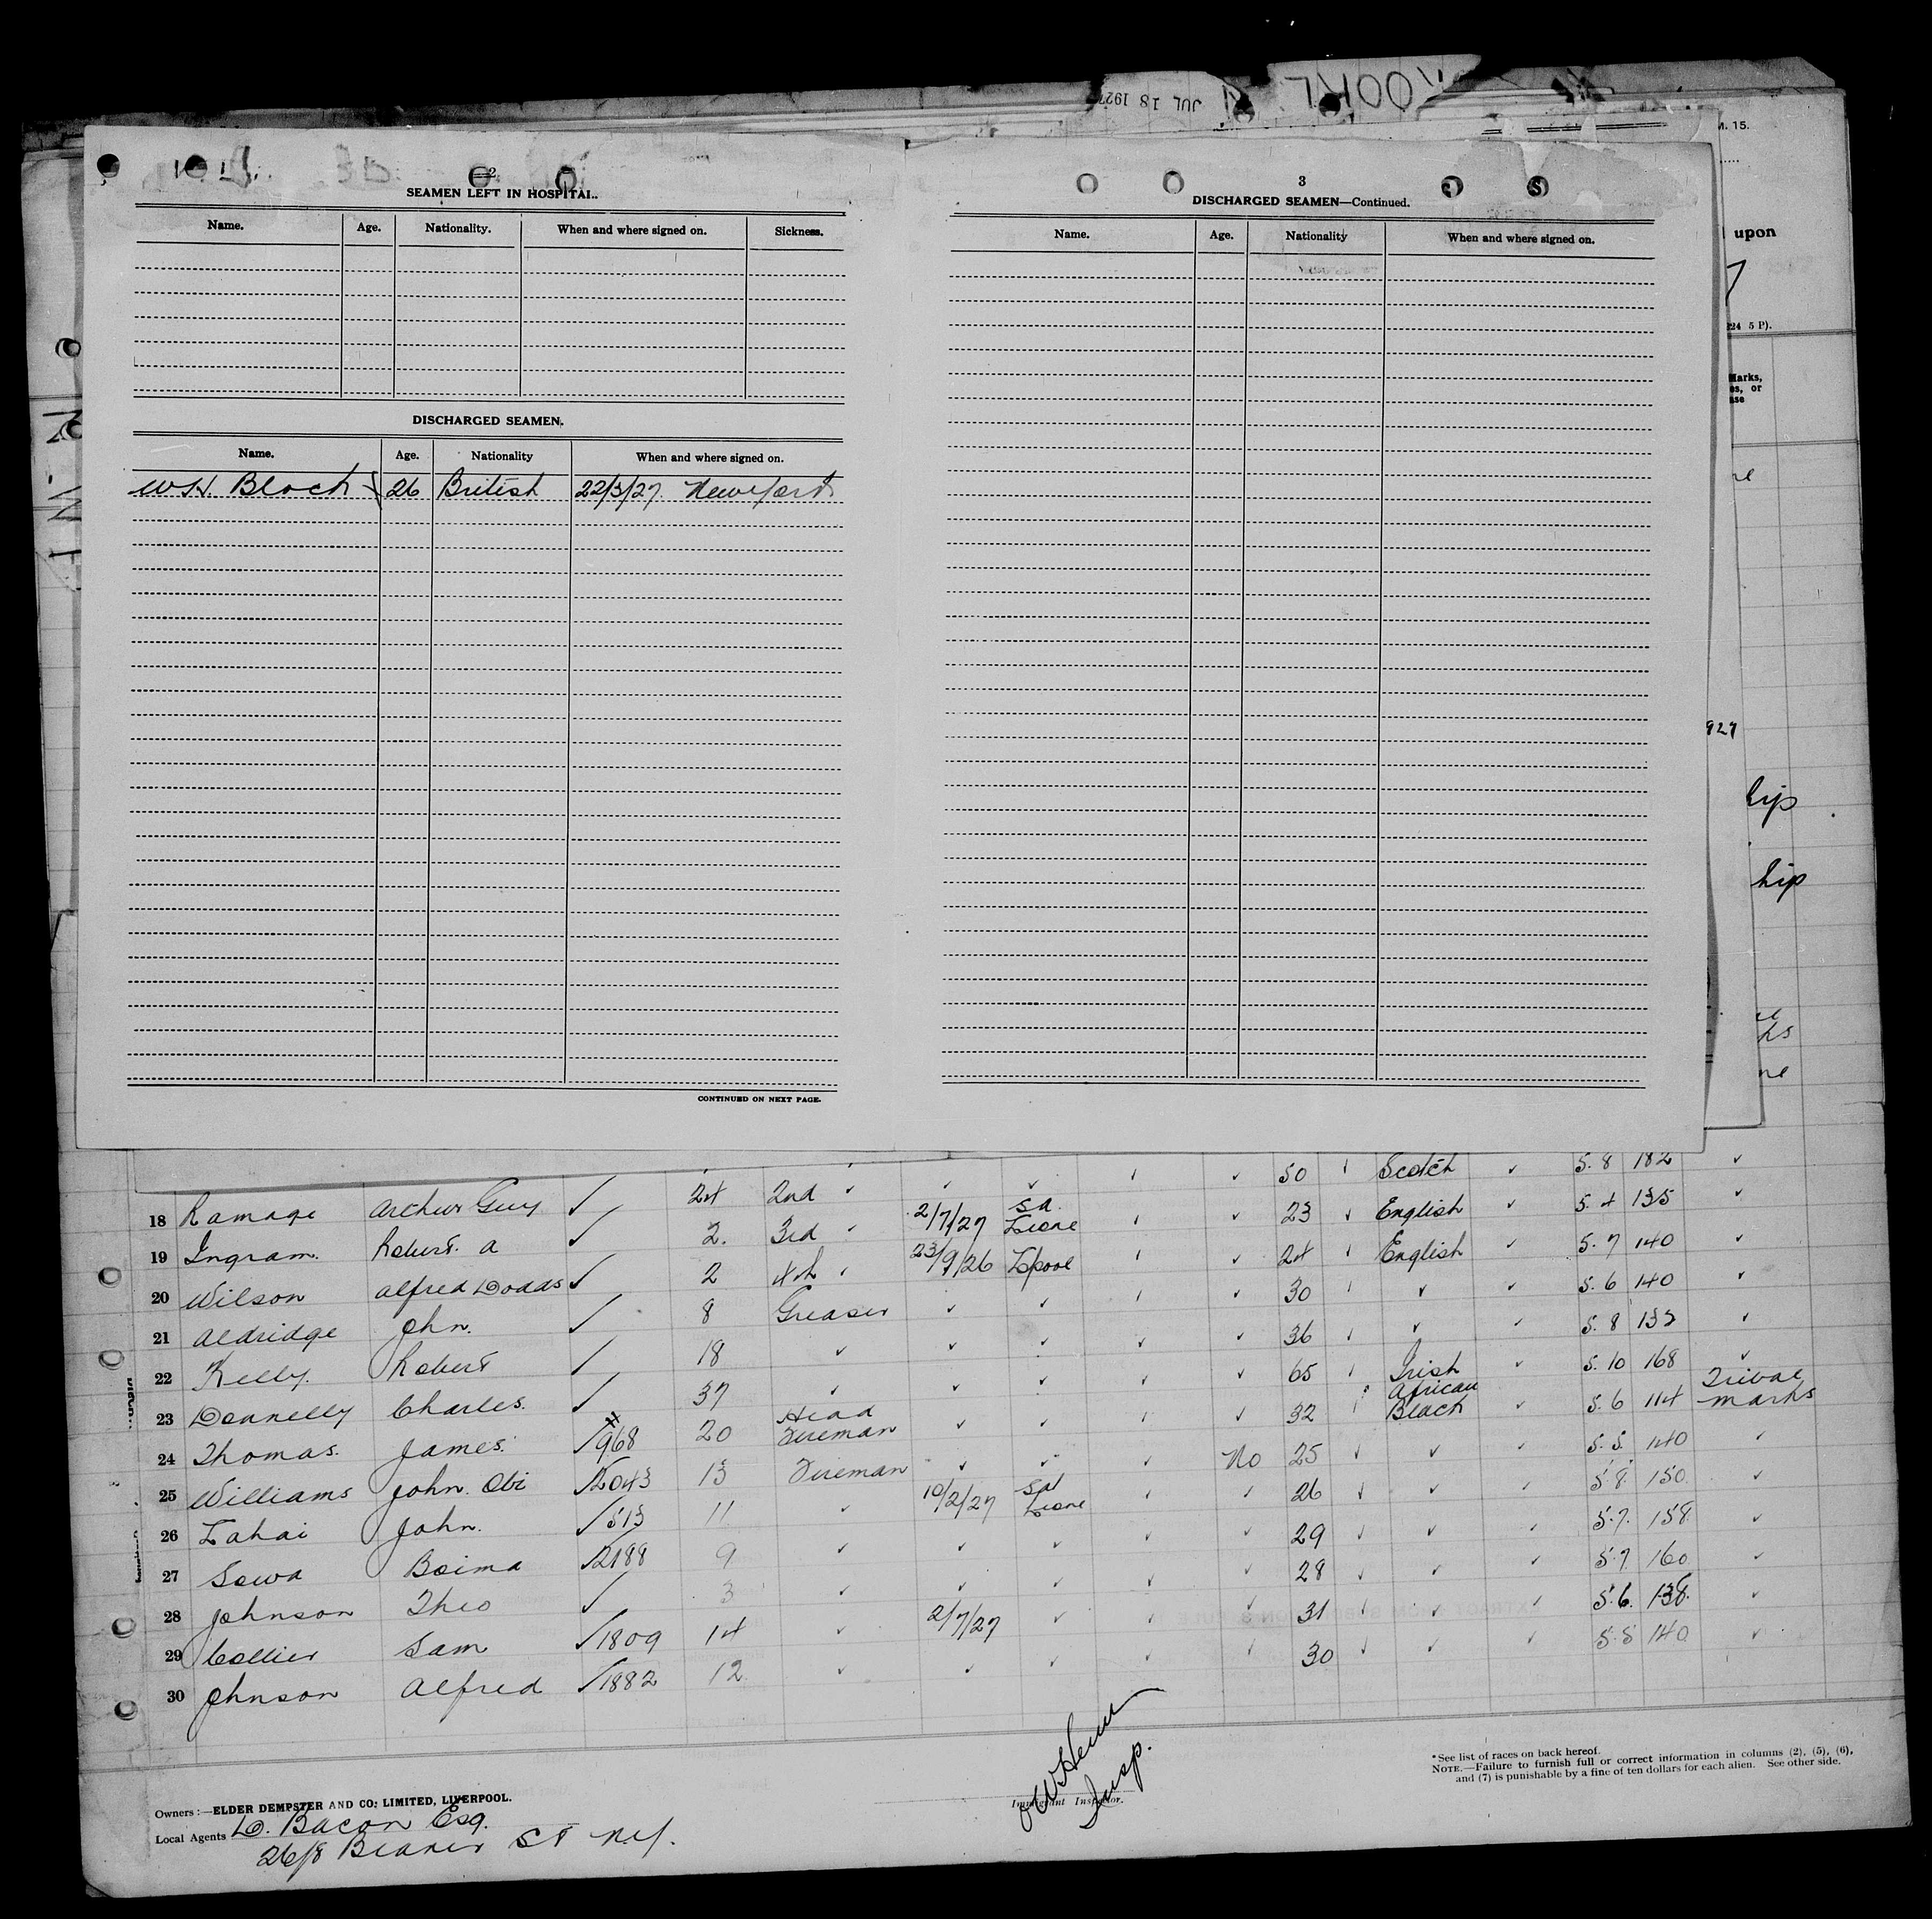 JUL 18 1927
M. 15.
2
SEAMEN LEFT IN HOSPITAL.
Name. Age. Nationality. When and where signed on. Sickness.
DISCHARGED SEAMEN.
Name. Age. Nationality When and where signed on.
W.H. Block 26 British 22/3/27. New York
CONTINUED ON NEXT PAGE.
3
DISCHARGED SEAMEN—Continued.
Name. Age. Nationality When and where signed on.
upon
224 5 P).
Marks,
es, or
ase
927
hip
hip
50 ✓ Scotch ✓ 5.8 182 ✓
18 Ramage Archer Guy ✓ 24 2nd ✓ ✓ ✓ ✓ ✓ 23 ✓ English ✓ 5.4 135 ✓
19 Ingram. Robert. A ✓ 2. 3rd ✓ 2/7/27 Sa. Leone ✓ ✓ 24 ✓ English ✓ 5.7 140 ✓
20 Wilson Alfred Dodds ✓ 2 4th ✓ 23/9/26 L'pool ✓ ✓ 30 ✓ ✓ ✓ 5.6 140 ✓
21 Aldridge John. ✓ 8 Greaser ✓ ✓ ✓ ✓ 36 ✓ ✓ ✓ 5.8 132 ✓
22 Kelly. Robert ✓ 18 ✓ ✓ ✓ ✓ ✓ 65 ✓ Irish ✓ 5.10 168 ✓
23 Donnelly Charles. ✓ 37 ✓ ✓ ✓ ✓ ✓ 32 ✓ African Black ✓ 5.6 114 Tribal marks
24 Thomas. James. ✓ 968 20 Head Fireman ✓ ✓ ✓ No 25 ✓ ✓ ✓ 5.5. 140 ✓
25 Williams John. Obi ✓ 2043 13 Fireman ✓ ✓ ✓ ✓ 26 ✓ ✓ ✓ 5.8. 150 ✓
26 Lahai John. ✓ 513 11 ✓ 10/2/27 Sa Leone ✓ ✓ 29 ✓ ✓ ✓ 5.7. 158. ✓
27 Sowa Boima ✓ 2188 9 ✓ ✓ ✓ ✓ ✓ 28 ✓ ✓ ✓ 5.7 160 ✓
28 Johnson Theo ✓ 3 ✓ ✓ ✓ ✓ ✓ 31 ✓ ✓ ✓ 5.6. 138. ✓
29 Collier Sam ✓ 1809 14 ✓ 2/7/27 ✓ ✓ ✓ 30 ✓ ✓ ✓ 5.5 140 ✓
30 Johnson Alfred ✓ 1882 12 ✓ ✓ ✓ ✓
Insp.
Immigrant Inspector.
*See list of races on back hereof.
NOTE.—Failure to furnish full or correct information in columns (2), (5), (6),
and (7) is punishable by a fine of ten dollars for each alien. See other side.
Owners:—ELDER DEMPSTER AND CO; LIMITED, LIVERPOOL.
Local Agents D. Bacon Esq.
26/8 Beaver St N.Y.